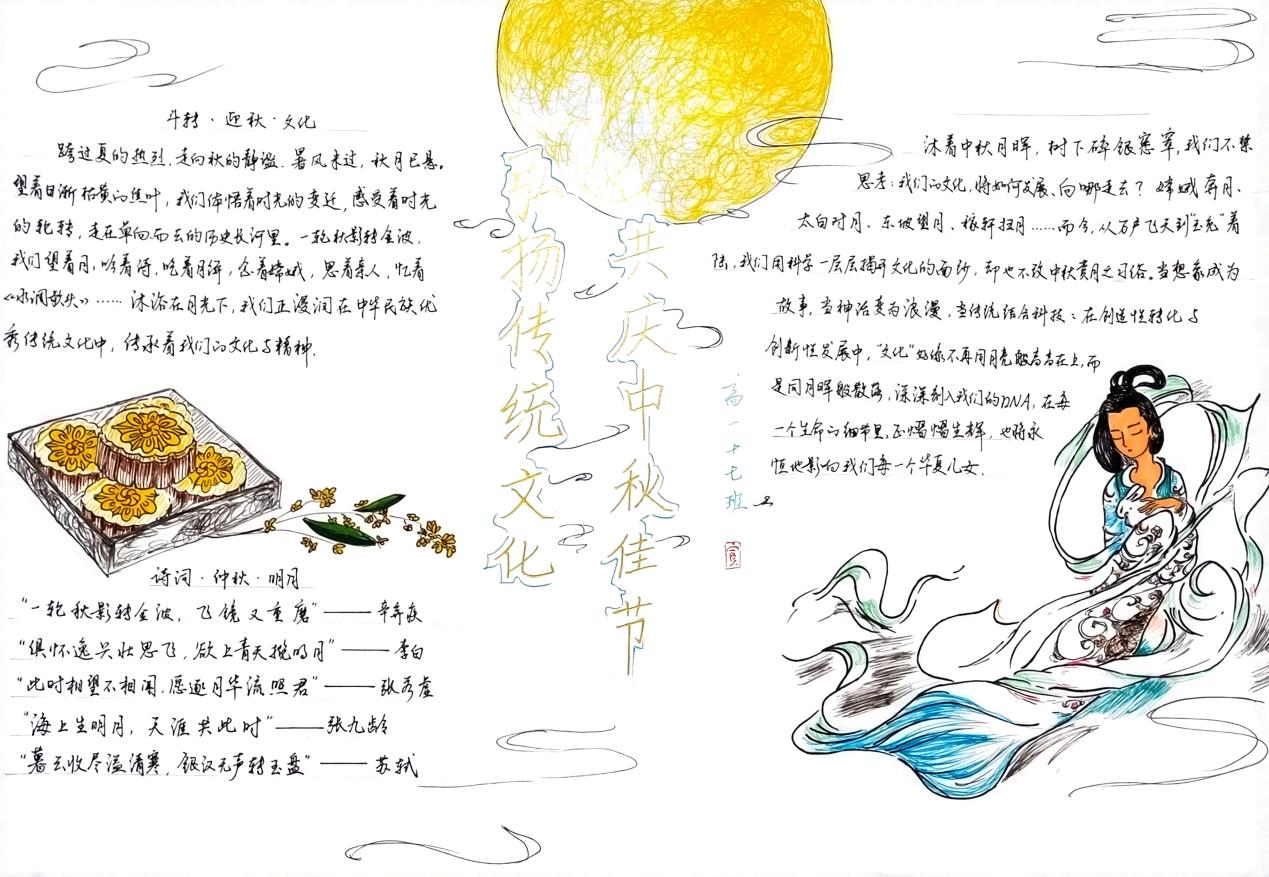 斗转·迎秋·文化
跨过夏的热烈，走向秋的静谧。暑风来过，秋月已悬。
望着日渐枯黄的焦叶，我们体悟着时光的变迁，感受着时光
的轮转，走在单向而去的历史长河里。一轮秋影转金波，
我们望着月，吟着诗，吃着月饼，念着嫦娥，思着亲人，忆着
《水调歌头》……沐浴在月光下，我们正浸润在中华民族优
秀传统文化中，传承着我们的文化与精神。
诗词·仲秋·明月
“一轮秋影转金波，飞镜又重磨”——辛弃疾
“俱怀逸兴壮思飞，欲上青天揽明月”——李白
“此时相望不相闻，愿逐月华流照君”——张若虚
“海上生明月，天涯共此时”——张九龄
“暮云收尽溢清寒，银汉无声转玉盘”——苏轼
共庆中秋佳节
弘扬传统文化
高一十七班
沐着中秋月晖，树下碎银窸窣，我们不禁
思考：我们的文化，将如何发展、向哪走去？嫦娥奔月、
太白对月、东坡望月、稼轩招月……而今，从万户飞天到“玉兔”着
陆，我们用科学一层层揭开文化的面纱，却也不改中秋赏月之习俗。当想象成为
故事，当神话变为浪漫，当传统结合科技：在创造性转化与
创新性发展中，“文化”好像不再同月亮般高高在上，而
是同月晖般散落，深深刻入我们的DNA，在每
一个生命的细节里，正熠熠生辉，也将永
恒地影响我们每一个华夏儿女。